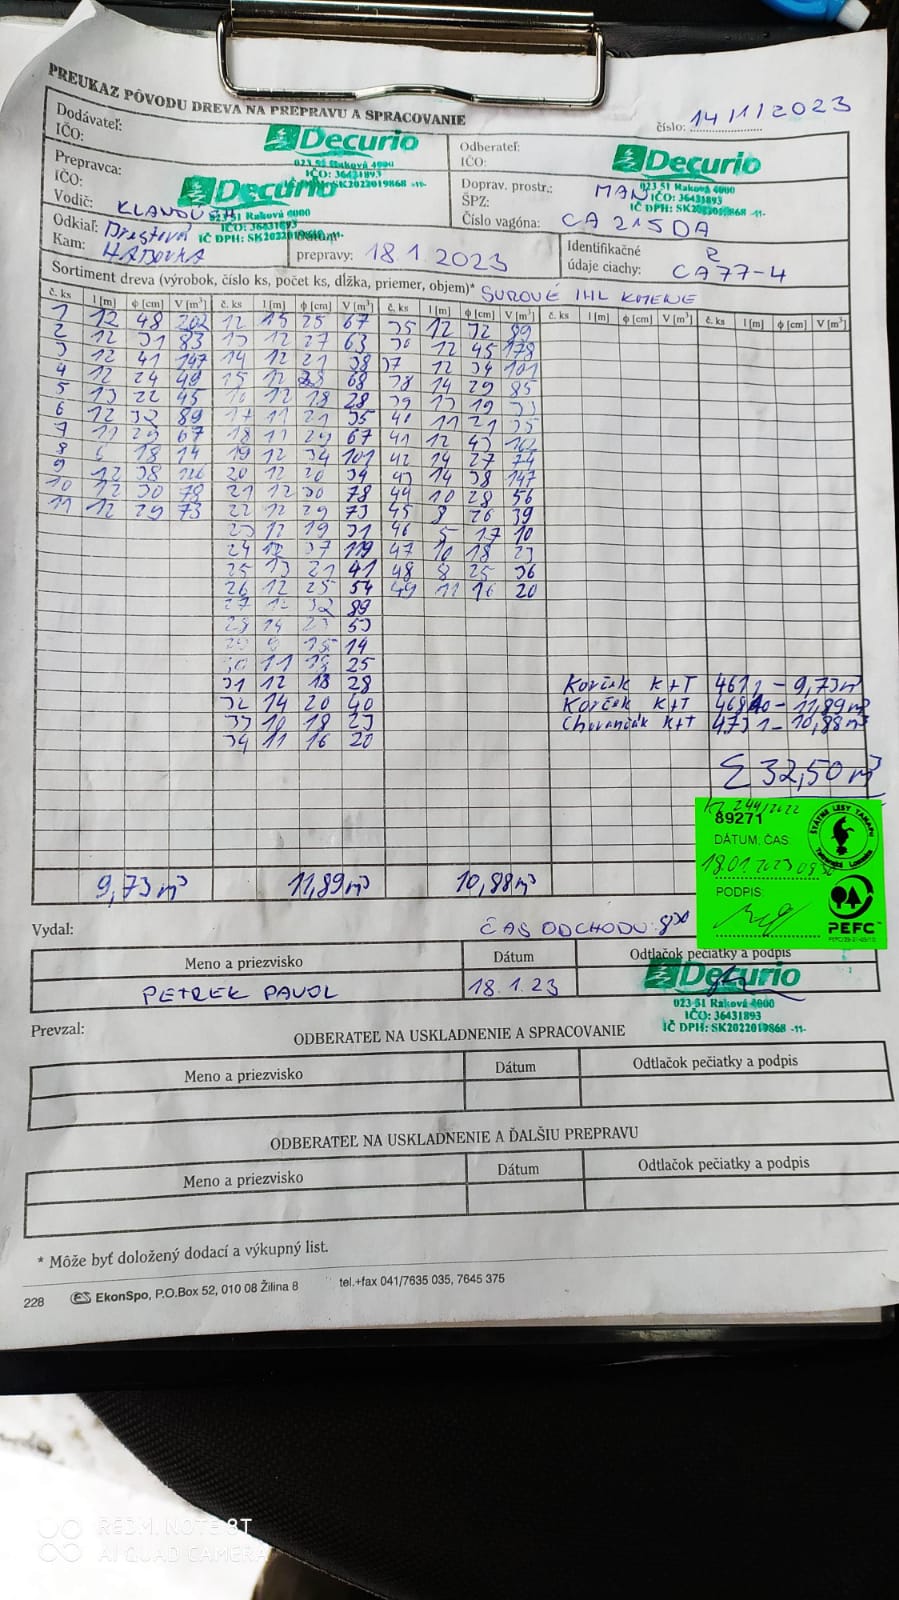 PREUKAZ PÔVODU DREVA NA PREPRAVU A SPRACOVANIE
číslo: 14/1/2023
Dodávateľ:
IČO:
Decurio
023 51 Raková 4000
IČO: 36431893
Odberateľ:
IČO:
Decurio
023 51 Raková 4000
IČO: 36431893
IČ DPH: SK2022019868 -11-
Prepravca:
IČO:
Decurio
023 51 Raková 4000
IČO: 36431893
IČ DPH: SK2022019868 -11-
Doprav. prostr.: MAN
ŠPZ:
Číslo vagóna: CA 215 DA
Vodič:
Odkiaľ:
Kam:
prepravy: 18.1.2023
Identifikačné
údaje ciachy: CA 77-4
Sortiment dreva (výrobok, číslo ks, počet ks, dĺžka, priemer, objem)* SUROVÉ IHL KMENE
č. ks l [m] ϕ [cm] V [m³] č. ks l [m] ϕ [cm] V [m³] č. ks l [m] ϕ [cm] V [m³] č. ks l [m] ϕ [cm] V [m³] č. ks l [m] ϕ [cm] V [m³]
1 12 48 202 12 13 25 67 35 12 32 89
2 12 31 83 13 12 27 63 36 12 45 178
3 12 41 147 14 12 21 38 37 12 34 101
4 12 24 49 15 12 28 68 38 14 29 85
5 13 22 45 16 12 18 28 39 13 19 33
6 12 32 89 17 11 21 35 40 11 21 35
7 11 29 67 18 11 29 67 41 12 43 162
8 6 18 14 19 12 34 101 42 14 27 74
9 12 38 126 20 12 20 34 43 14 38 147
10 12 30 78 21 12 30 78 44 10 28 56
11 12 29 73 22 12 29 73 45 8 26 39
23 12 19 31 46 5 17 10
24 12 37 119 47 10 18 23
25 13 21 41 48 8 25 36
26 12 25 54 49 11 16 20
27 12 32 89
28 14 23 53
29 9 15 14
30 11 18 25
31 12 18 28
32 14 20 40
33 10 18 23
34 11 16 20
Korčák K+T 461 - 9,73 m³
Korčák K+T - 11,89 m³
K+T 4731 - 10,88 m³
Σ 32,50 m³
89271
DÁTUM, ČAS
18.01.2023
PODPIS:
ŠTÁTNE LESY TANAPU
PEFC
9,73 m³ 11,89 m³ 10,88 m³
Vydal:
ČAS ODCHODU: 8³⁰
Meno a priezvisko Dátum Odtlačok pečiatky a podpis
PETREK PAVOL 18.1.23
Decurio
023 51 Raková 4000
IČO: 36431893
IČ DPH: SK2022019868 -11-
Prevzal:
ODBERATEĽ NA USKLADNENIE A SPRACOVANIE
Meno a priezvisko Dátum Odtlačok pečiatky a podpis
ODBERATEĽ NA USKLADNENIE A ĎALŠIU PREPRAVU
Meno a priezvisko Dátum Odtlačok pečiatky a podpis
* Môže byť doložený dodací a výkupný list.
228 EkonSpo, P.O.Box 52, 010 08 Žilina 8 tel.+fax 041/7635 035, 7645 375
REDMI NOTE 8T
AI QUAD CAMERA